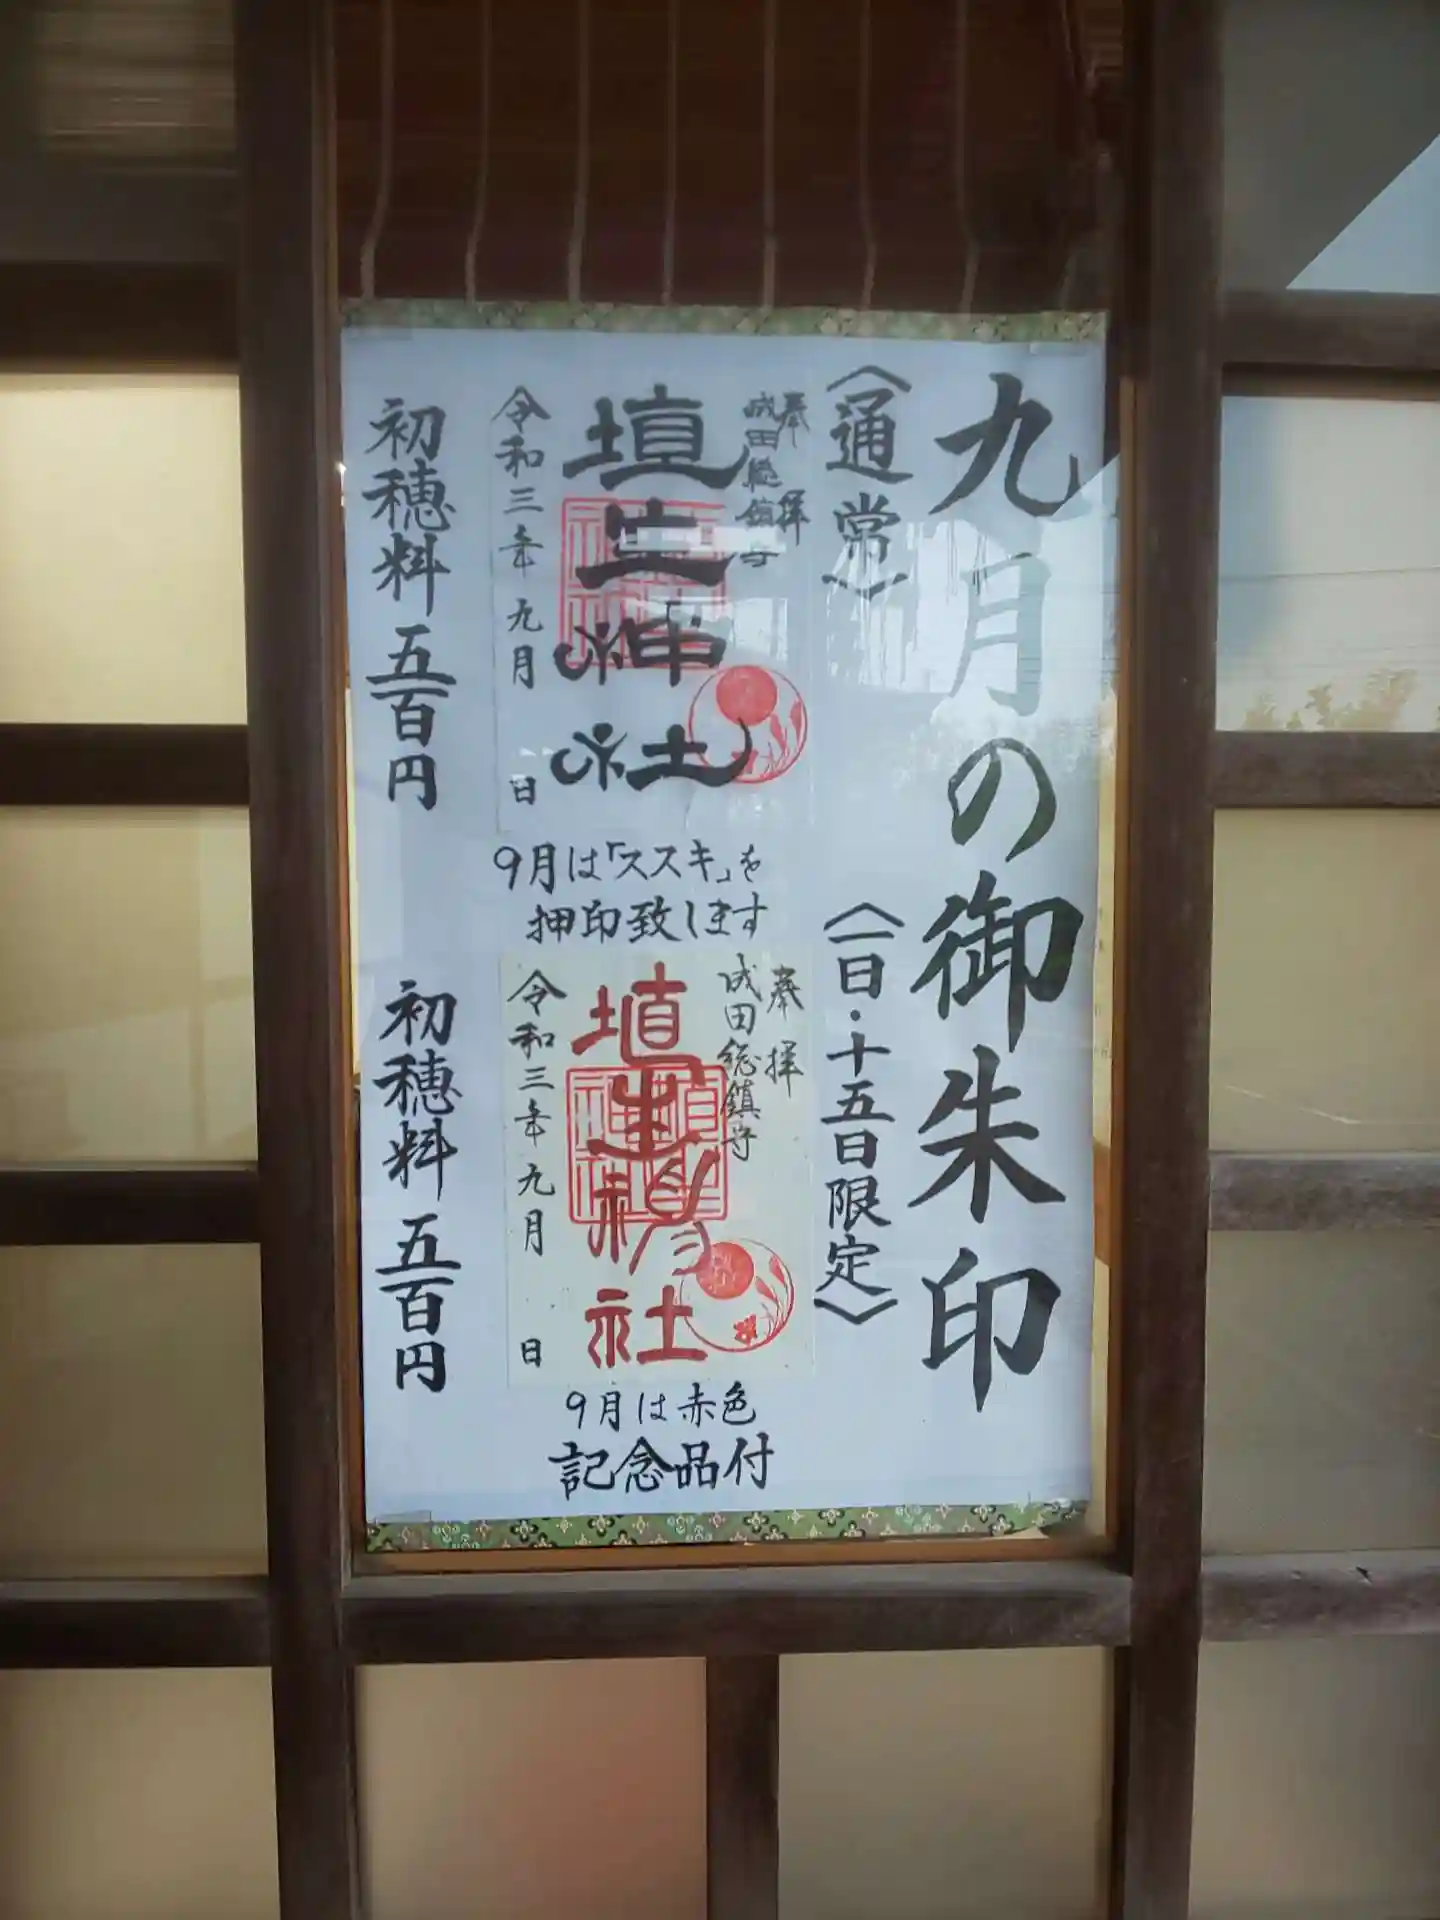 九月の御朱印
〈通常〉
奉拝
成田総鎮守
埴生神社
令和三年九月 日
初穂料 五百円
9月は「ススキ」を
押印致します
〈一日・十五日限定〉
奉拝
成田総鎮守
埴生神社
令和三年九月 日
初穂料 五百円
9月は赤色
記念品付